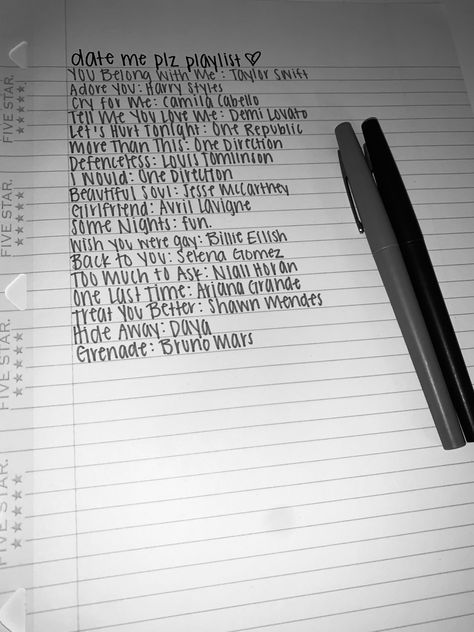 date me plz playlist ♡
You Belong With Me: Taylor Swift
Adore You: Harry Styles
Cry for Me: Camila Cabello
Tell Me You Love Me: Demi Lovato
Let's Hurt Tonight: One Republic
More Than This: One Direction
Defenceless: Louis Tomlinson
I Would: One Direction
Beautiful Soul: Jesse McCartney
Girlfriend: Avril Lavigne
Some Nights: fun.
Wish You were gay: Billie Eilish
Back to You: Selena Gomez
Too Much to Ask: Niall Horan
One Last Time: Ariana Grande
Treat You Better: Shawn Mendes
Hide Away: Daya
Grenade: Bruno Mars
FIVE STAR.
FIVE STAR.
FIVE STAR.
FIVE STAR.